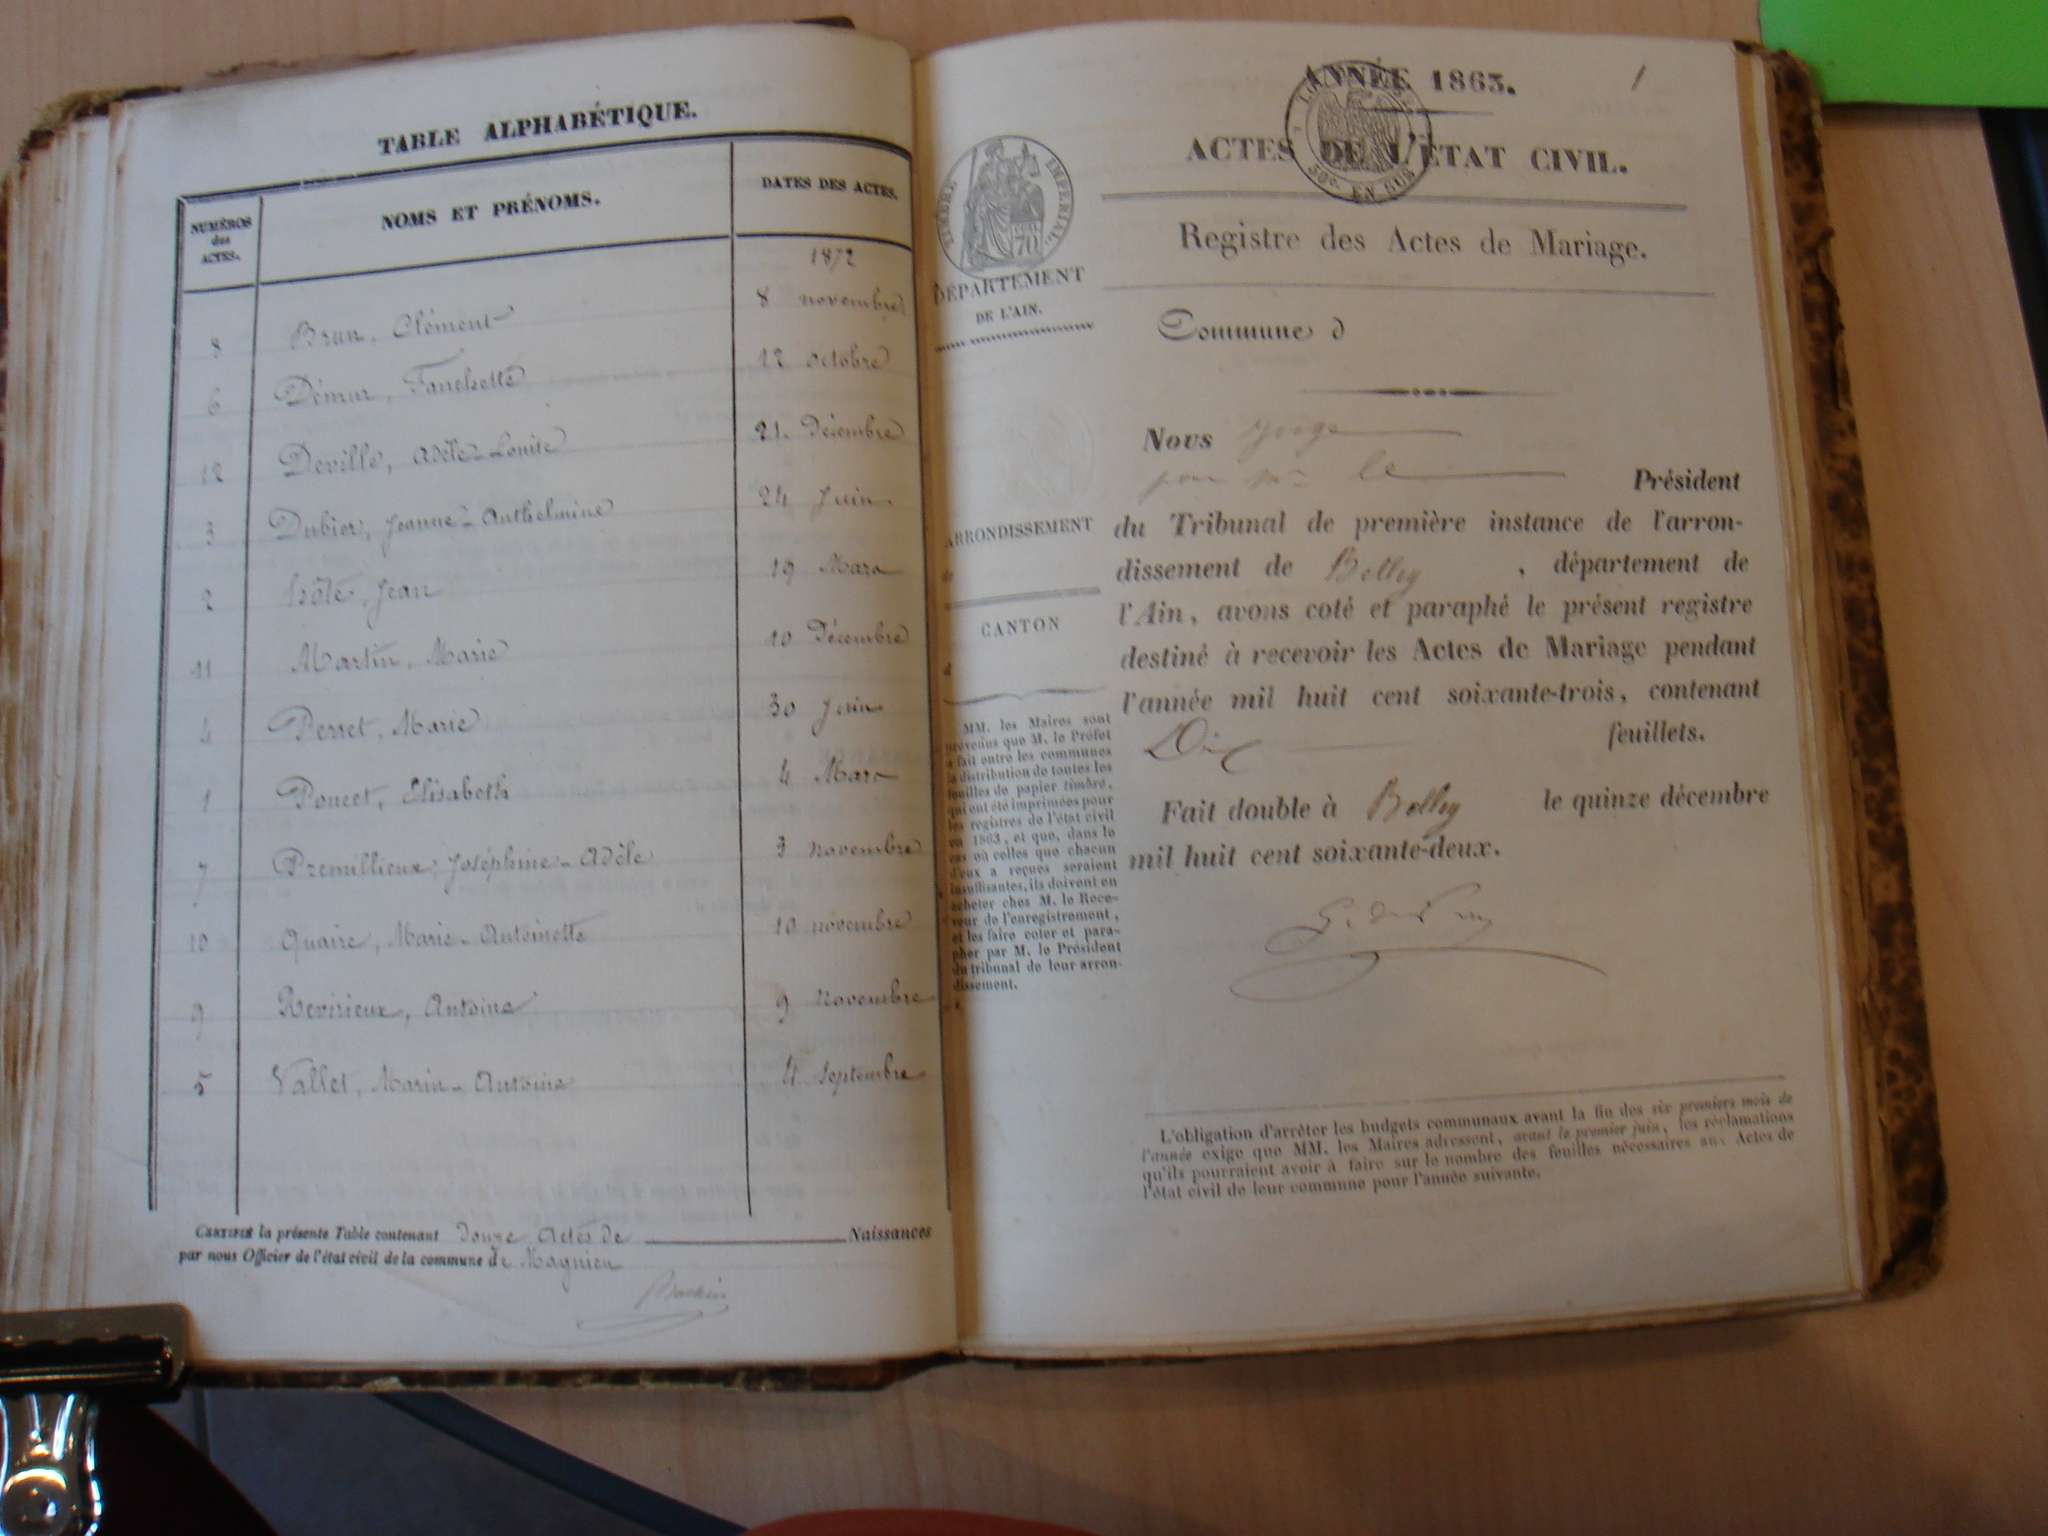 TABLE ALPHABÉTIQUE.
NUMÉROS des ACTES. NOMS ET PRÉNOMS. DATES DES ACTES.
1872
8 Brun, Clément 8 novembre
6 Démur, Fanchette 12 octobre
12 Deville, Adèle-Louise 21 Décembre
3 Dubier, Jeanne-Anthelmine 24 Juin
2 hôte, Jean 19 Mars
11 Martin, Marie 10 Décembre
4 Perret, Marie 30 Juin
1 Poncet, Elisabeth 4 Mars
7 Premillieux, Joséphine-Adèle 3 novembre
10 Quaire, Marie-Antoinette 10 novembre
9 Revirieux, Antoine 9 Novembre
5 Vallet, Marin-Antoine 4 septembre
CERTIFIÉ la présente Table contenant douze Actes de Naissances
par nous Officier de l'état civil de la commune de Magnieu
1
ANNÉE 1863.
ACTES DE L'ÉTAT CIVIL.
50c. EN SUS
Registre des Actes de Mariage.
TIMBRE IMPÉRIAL
70
DÉPARTEMENT
DE L'AIN.
Commune d
Nous Juge
pour Mr le Président
du Tribunal de première instance de l'arron-
dissement de Belley, département de
l'Ain, avons coté et paraphé le présent registre
destiné à recevoir les Actes de Mariage pendant
l'année mil huit cent soixante-trois, contenant
Dix feuillets.
Fait double à Belley le quinze décembre
mil huit cent soixante-deux.
ARRONDISSEMENT
de
CANTON
d
MM. les Maires sont
prévenus que M. le Préfet
a fait entre les communes
la distribution de toutes les
feuilles de papier timbré,
qui ont été imprimées pour
les registres de l'état civil
en 1863, et que, dans le
cas où celles que chacun
d'eux a reçues seraient
insuffisantes, ils doivent en
acheter chez M. le Rece-
veur de l'enregistrement,
et les faire coter et para-
pher par M. le Président
du tribunal de leur arron-
dissement.
L'obligation d'arrêter les budgets communaux avant la fin des six premiers mois de
l'année exige que MM. les Maires adressent, avant le premier juin, les réclamations
qu'ils pourraient avoir à faire sur le nombre des feuilles nécessaires aux Actes de
l'état civil de leur commune pour l'année suivante.